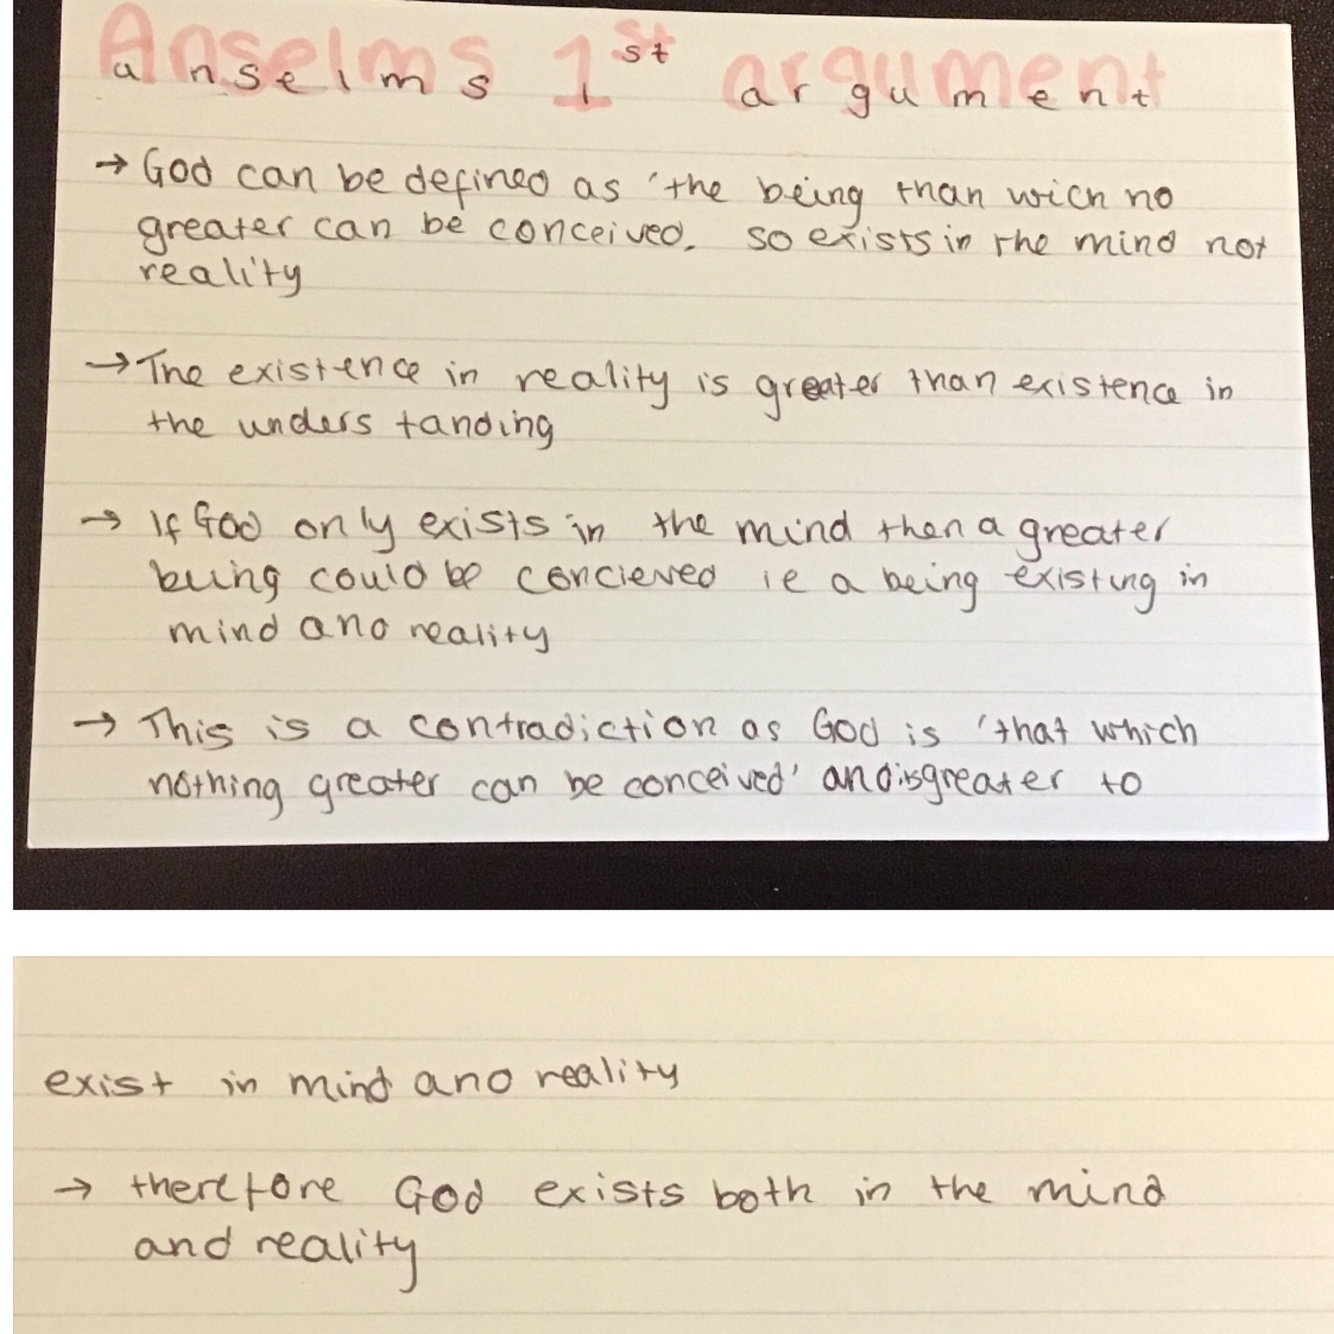 Anselms 1st argument
anselms 1st argument
→ God can be defined as 'the being than wich no
greater can be conceived, so exists in the mind not
reality
→ The existence in reality is greater than existence in
the understanding
→ If God only exists in the mind then a greater
being could be concieved ie a being existing in
mind and reality
→ This is a contradiction as God is 'that which
nothing greater can be conceived' and is greater to
exist in mind and reality
→ therefore God exists both in the mind
and reality